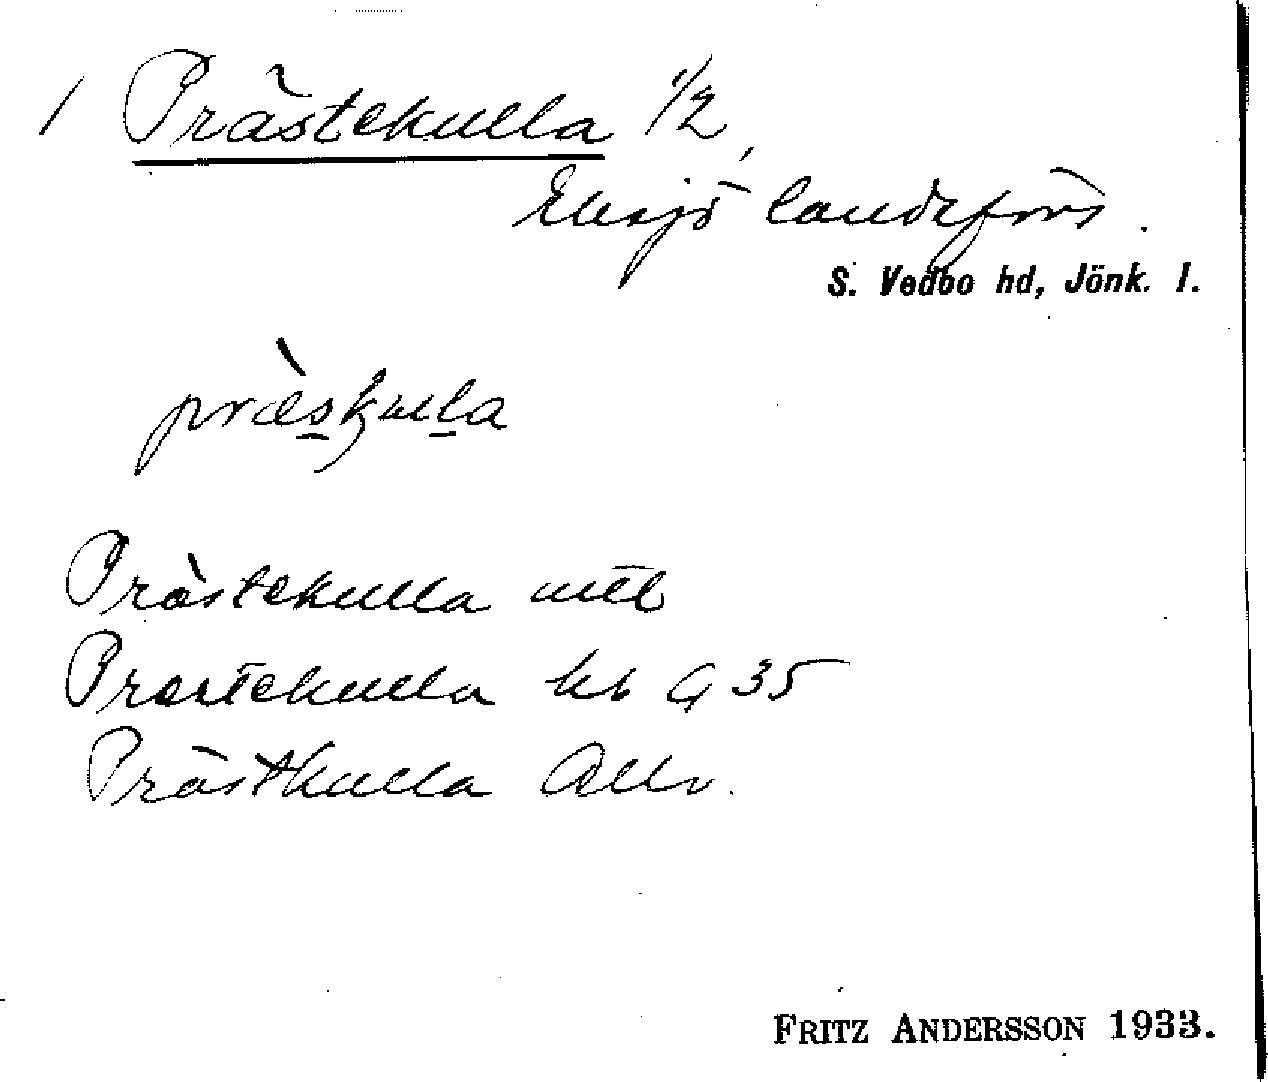 1 Prästekulla 1/2,
Eksjö landsförs.
S. Vedbo hd, Jönk. l.
præskula
Prästekulla mtl
Prestekulla kb G 35
Prästkulla Allv.
FRITZ ANDERSSON 1933.